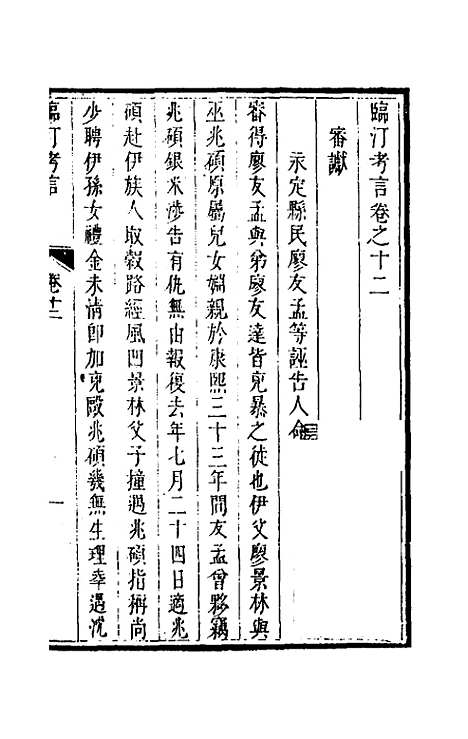 臨汀考言卷之十二
審讞
永定縣民廖友孟等誣告人命
審得廖友孟與弟廖友達皆兇暴之徒也伊父廖景林與
巫兆碩原屬兒女姻親於康熙三十三年間友孟曾夥竊
兆碩銀米涉告有仇無由報復去年七月二十四日適兆
碩赴伊族人取穀路經風凹景林父子撞遇兆碩指稱尚
少聘伊孫女禮金未清即加兇毆兆碩幾無生理幸遇沈
臨汀考言
卷十二
一